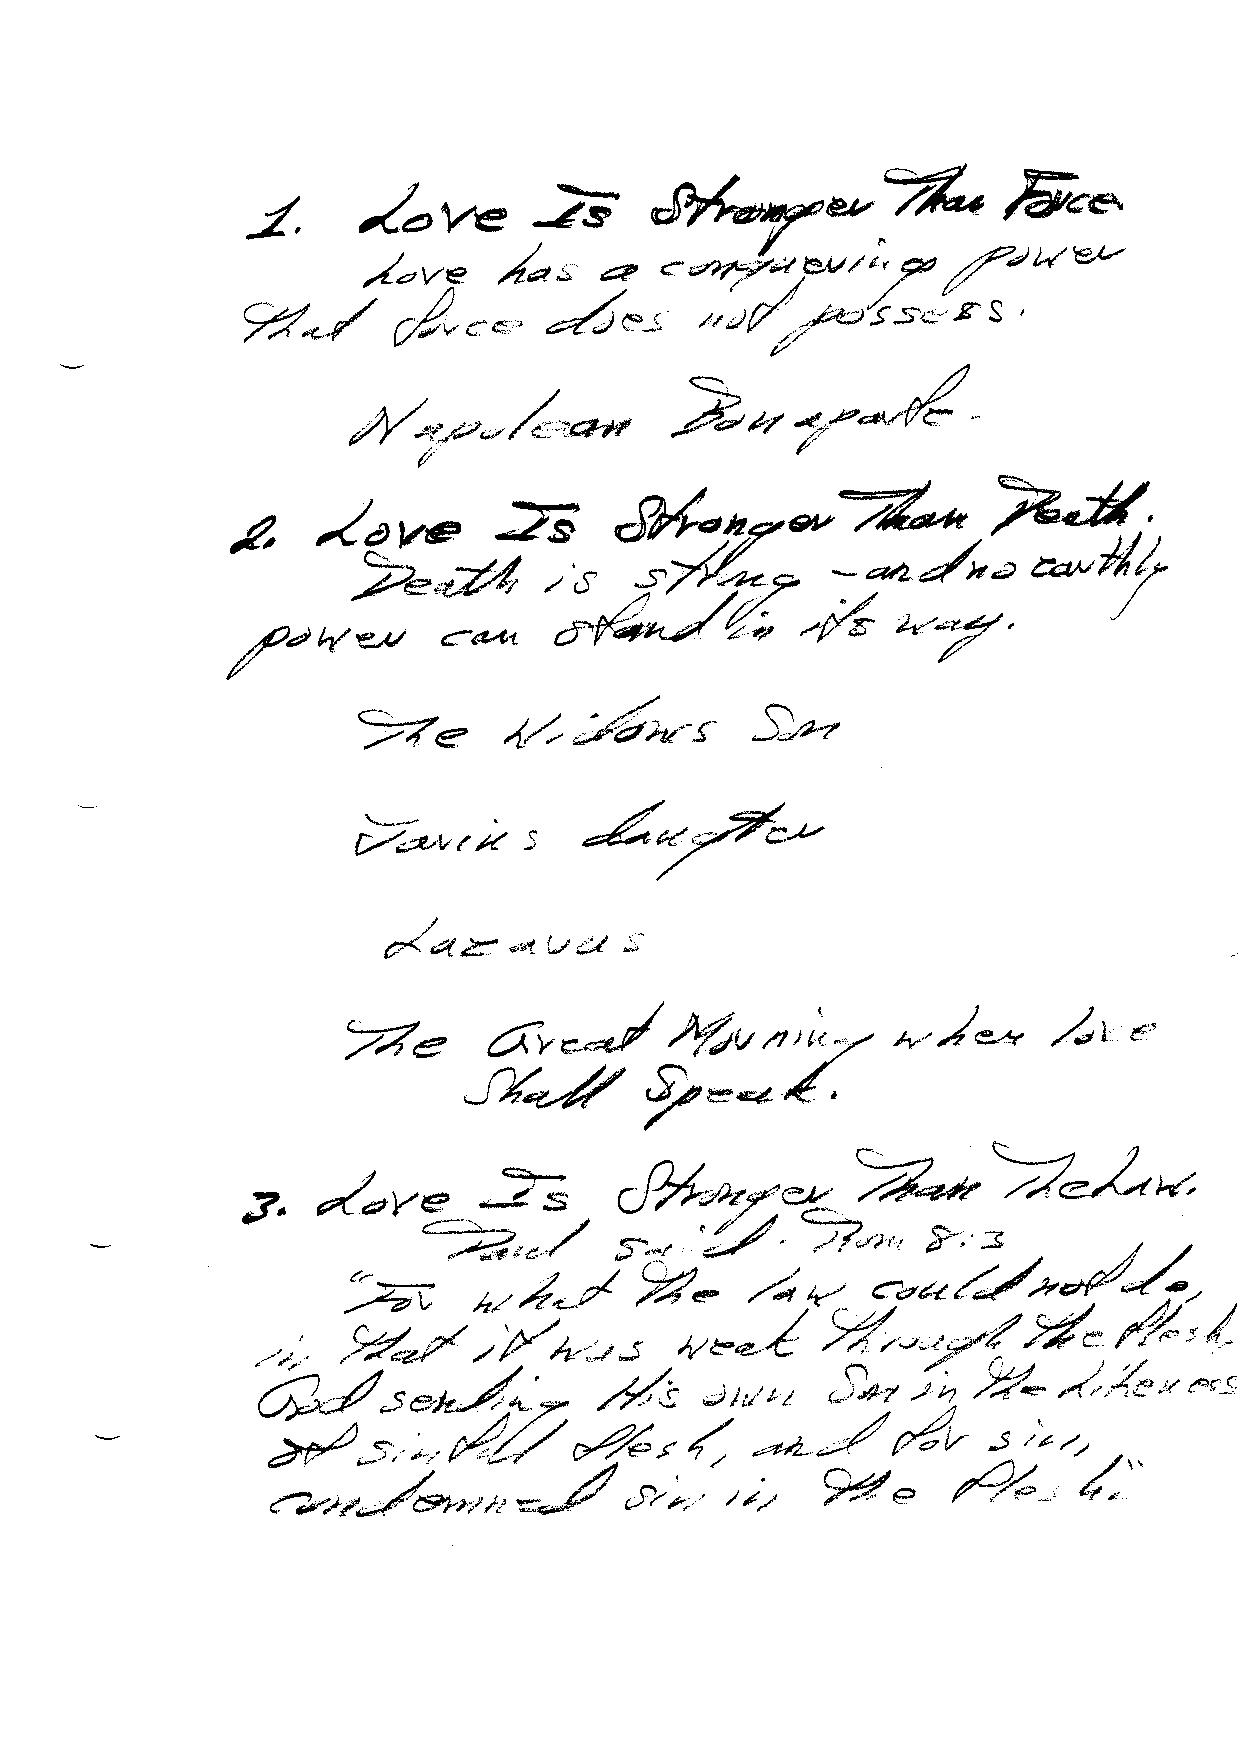 1. Love Is Stronger Than Force
Love has a conquering power
that force does not possess.
Napolean Bonaparte.
2. Love Is Stronger Than Death.
Death is strong - and no earthly
power can stand in its way.
The Widows Son
Jarius daughter
Lazarus
The Great Morning when love
Shall Speak.
3. Love Is Stronger Than The Law.
Paul said. Rom 8:3
"For what the law could not do,
in that it was weak through the flesh,
God sending His own Son in the Likeness
of sinful flesh, and for sin,
condemned sin in the flesh."